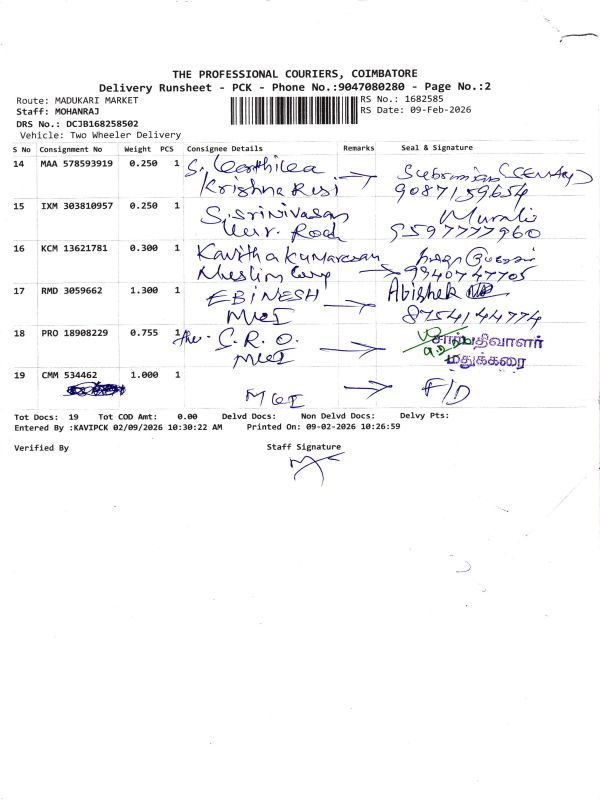 THE PROFESSIONAL COURIERS, COIMBATORE
Delivery Runsheet - PCK - Phone No.:9047080280 - Page No.:2
Route: MADUKARI MARKET
RS No.: 1682585
Staff: MOHANRAJ
RS Date: 09-Feb-2026
DRS No.: DCJB168258502
Vehicle: Two Wheeler Delivery
S No Consignment No Weight PCS Consignee Details Remarks Seal & Signature
14 MAA 578593919 0.250 1 S.
Krishna 9087159654
15 IXM 303810957 0.250 1 S. Srinivasan Murali
9597777960
16 KCM 13621781 0.300 1 Kavitha Kumaresan
Muslim 9940747705
17 RMD 3059662 1.300 1 EBINESH Abishek
8754144774
18 PRO 18908229 0.755 1 The C.R.O. சார்பதிவாளர்
மதுக்கரை
19 CMM 534462 1.000 1
F/D
Tot Docs: 19 Tot COD Amt: 0.00 Delvd Docs: Non Delvd Docs: Delvy Pts:
Entered By :KAVIPCK 02/09/2026 10:30:22 AM Printed On: 09-02-2026 10:26:59
Verified By Staff Signature